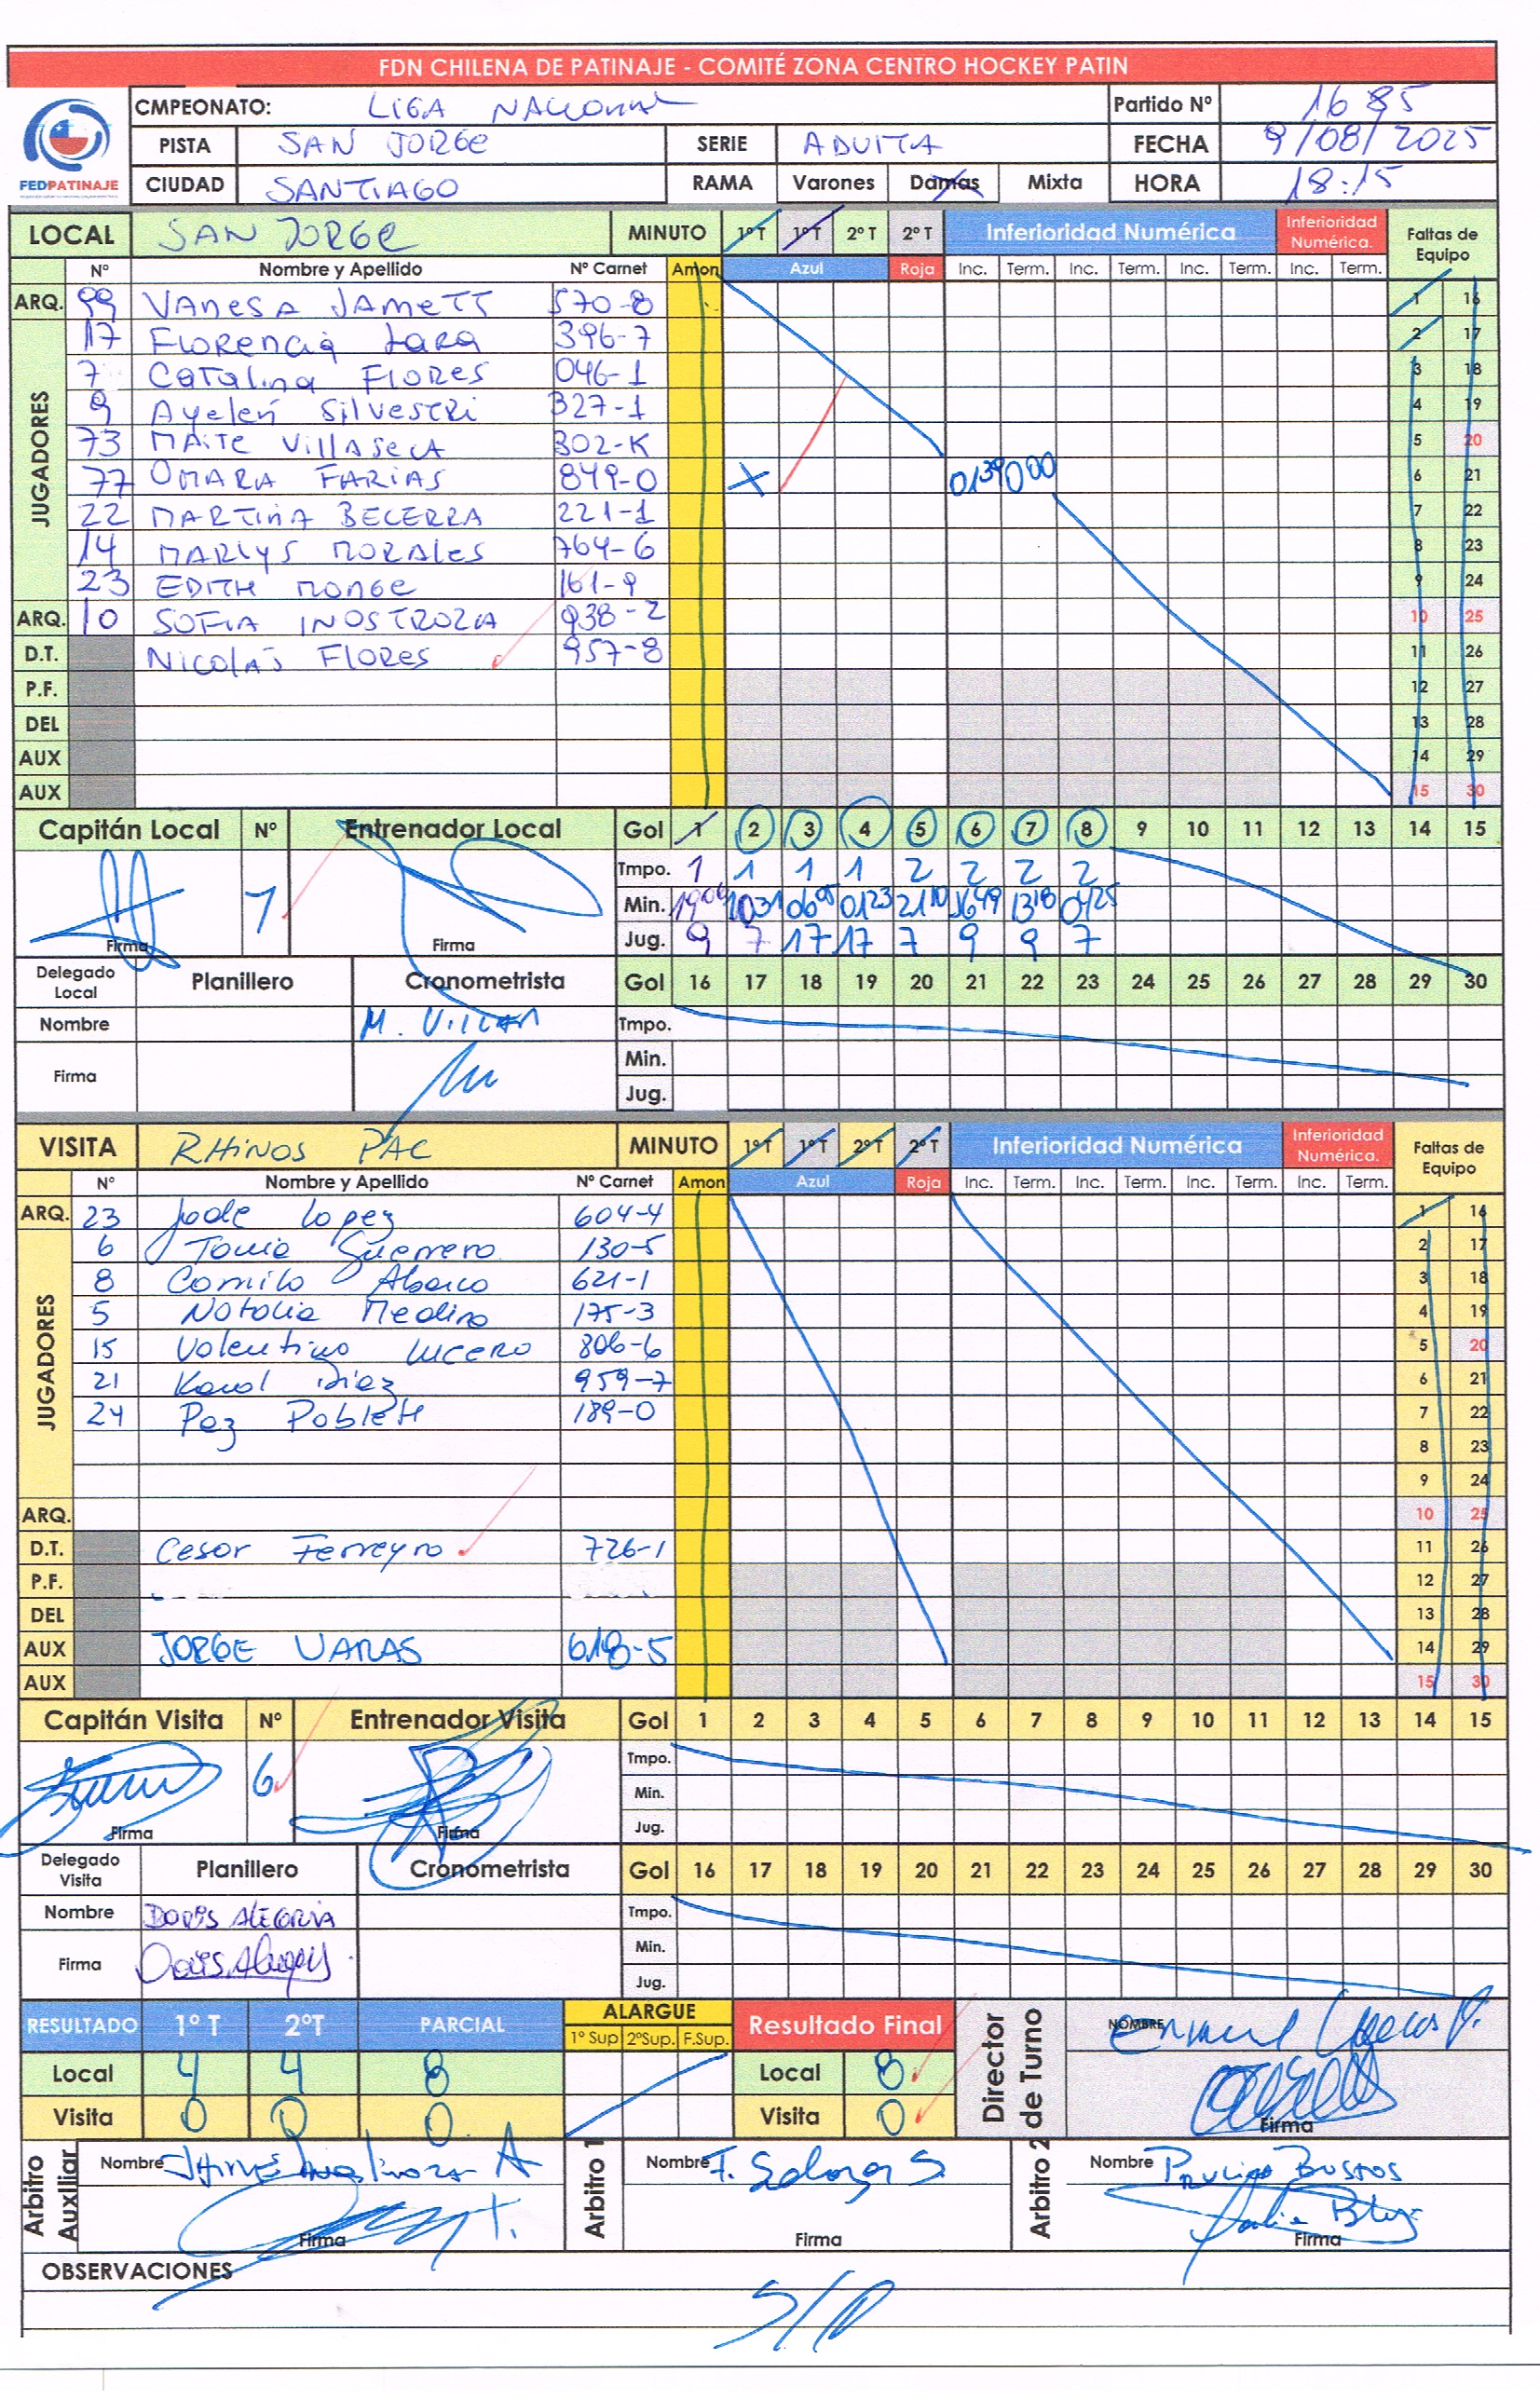 FDN CHILENA DE PATINAJE - COMITÉ ZONA CENTRO HOCKEY PATIN
FEDPATINAJE
CMPEONATO: LIGA NACIONAL Partido Nº 1685
PISTA SAN JORGE SERIE ADULTA FECHA 9/08/2025
CIUDAD SANTIAGO RAMA Varones Damas Mixta HORA 18:15
LOCAL SAN JORGE MINUTO 1º T 1º T 2º T 2º T Inferioridad Numérica Inferioridad Numérica. Faltas de Equipo
Nº Nombre y Apellido Nº Carnet Amon Azul Roja Inc. Term. Inc. Term. Inc. Term. Inc. Term.
JUGADORES
ARQ. 99 VANESA JAMETT 570-8 1 16
17 FLORENCIA LARA 396-7 2 17
7 CATALINA FLORES 046-1 3 18
9 Ayelén SILVESTRI 327-1 4 19
73 MAITE VILLASECA 302-K 5 20
77 OMARA FARIAS 849-0 X 0139 000 6 21
22 MARTINA BECERRA 221-1 7 22
14 MARLYS MORALES 764-6 8 23
23 EDITH MONGE 161-9 9 24
ARQ. 10 SOFIA INOSTROZA 938-2 10 25
D.T. NICOLÁS FLORES 957-8 11 26
P.F. 12 27
DEL 13 28
AUX 14 29
AUX 15 30
Capitán Local Nº Entrenador Local Gol 1 2 3 4 5 6 7 8 9 10 11 12 13 14 15
Tmpo. 1 1 1 1 2 2 2 2
7 Min. 1906 1031 0605 0123 2110 1649 1318 0425
Firma Firma Jug. 9 7 17 17 7 9 9 7
Delegado Local Planillero Cronometrista Gol 16 17 18 19 20 21 22 23 24 25 26 27 28 29 30
Nombre M. VILLAR Tmpo.
Firma Min.
Jug.
VISITA RHINOS PAC MINUTO 1º T 1º T 2º T 2º T Inferioridad Numérica Inferioridad Numérica. Faltas de Equipo
Nº Nombre y Apellido Nº Carnet Amon Azul Roja Inc. Term. Inc. Term. Inc. Term. Inc. Term.
JUGADORES
ARQ. 23 Jade Lopez 604-4 1 16
6 Tania Guerrero 130-5 2 17
8 Camila Abarca 621-1 3 18
5 Natalia Medina 175-3 4 19
15 Valentina Lucero 806-6 5 20
21 Karol Diaz 959-7 6 21
24 Paz Poblete 189-0 7 22
8 23
9 24
ARQ. 10 25
D.T. Cesar Ferreyra 726-1 11 26
P.F. 12 27
DEL 13 28
AUX JORGE VARAS 618-5 14 29
AUX 15 30
Capitán Visita Nº Entrenador Visita Gol 1 2 3 4 5 6 7 8 9 10 11 12 13 14 15
Tmpo.
6 Min.
Firma Firma Jug.
Delegado Visita Planillero Cronometrista Gol 16 17 18 19 20 21 22 23 24 25 26 27 28 29 30
Nombre DORIS ALEGRIA Tmpo.
Firma Min.
Jug.
RESULTADO 1º T 2ºT PARCIAL ALARGUE Resultado Final Director de Turno NOMBRE
1º Sup 2ºSup. F.Sup.
Local 4 4 8 Local 8
Visita 0 0 0 Visita 0 Firma
Arbitro Auxiliar Nombre Arbitro 1 Nombre F. Salazar S Arbitro 2 Nombre PAULINA BUSTOS
Firma Firma Firma
OBSERVACIONES
S/O